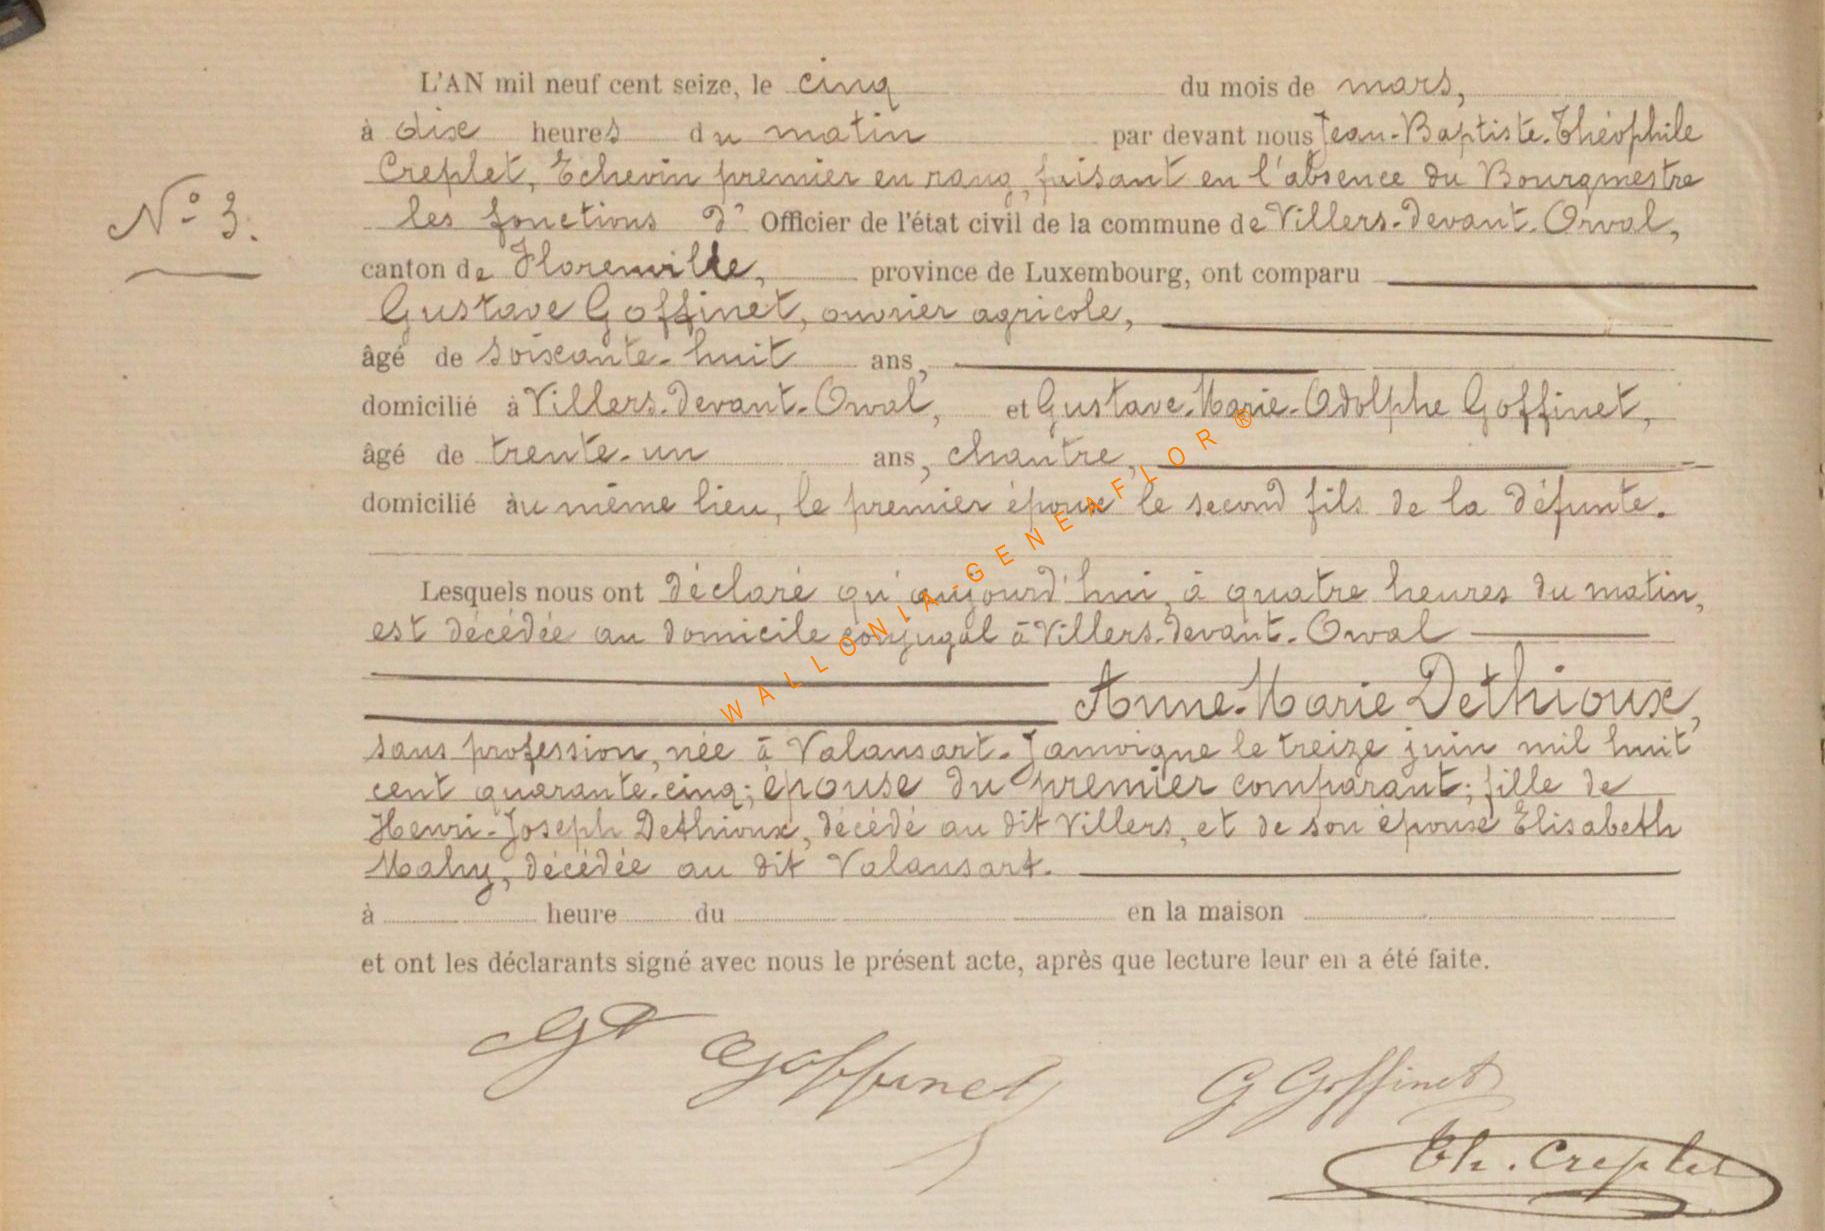 L'AN mil neuf cent seize, le cinq du mois de mars,
à dix heures du matin par devant nous Jean-Baptiste-Théophile
Creplet, Echevin premier en rang, faisant en l'absence du Bourgmestre
N° 3.
les fonctions d' Officier de l'état civil de la commune de Villers-devant-Orval,
canton de Florenville, province de Luxembourg, ont comparu
Gustave Goffinet, ouvrier agricole,
âgé de soixante-huit ans,
domicilié à Villers-devant-Orval, et Gustave-Marie-Adolphe Goffinet,
âgé de trente-un ans, chantre,
domicilié au même lieu, le premier époux le second fils de la défunte.
Lesquels nous ont déclaré qu'aujourd'hui, à quatre heures du matin,
est décédée au domicile conjugal à Villers-devant-Orval
Anne-Marie Dethioux,
sans profession, née à Valansart-Jamoigne le treize juin mil huit
cent quarante-cinq; épouse du premier comparant; fille de
Henri-Joseph Dethioux, décédé au dit Villers, et de son épouse Elisabeth
Mahy, décédée au dit Valansart.
à heure du en la maison
et ont les déclarants signé avec nous le présent acte, après que lecture leur en a été faite.
Gt Goffinet
G Goffinet
Th. Creplet
WALLONIA-GENEAFLOR ®